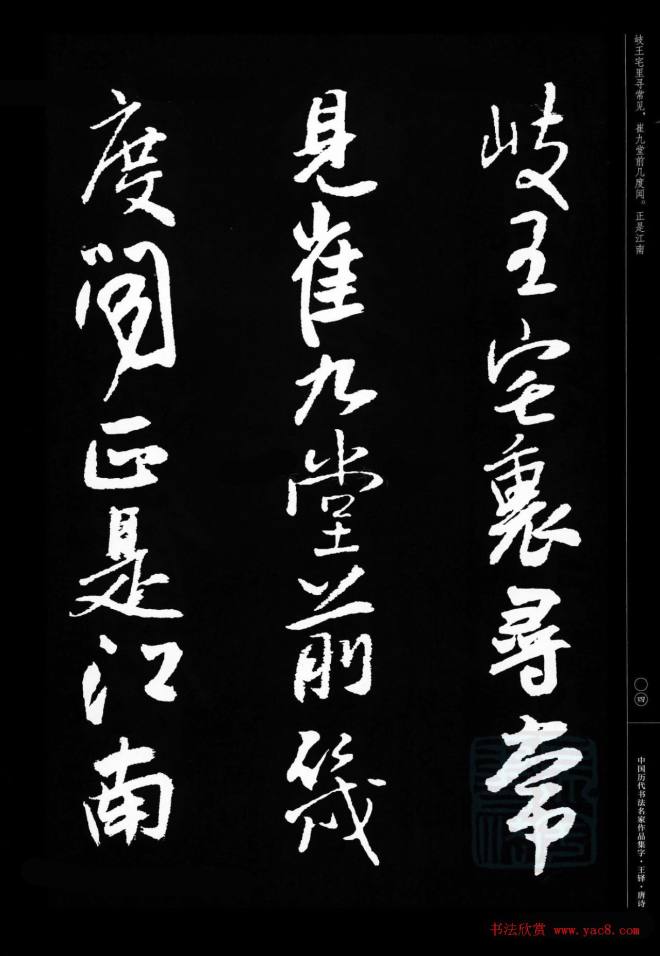 岐王宅裏尋常
見崔九堂前幾
度聞正是江南
岐王宅里寻常见，崔九堂前几度闻。正是江南
〇四
中国历代书法名家作品集字·王铎·唐诗
书法欣赏 www.yac8.com